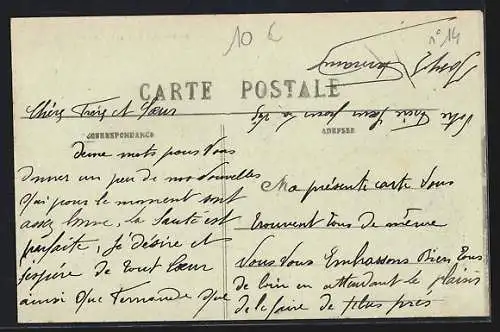 10 €
n° 14
CARTE POSTALE
Chers Frère et Sœur
CORRESPONDANCE
ADRESSE
Deux mots pour vous
donner un peu de nos nouvelles
qui pour le moment sont
assez bonne, la santé est
parfaite, je désire et
j'espère de tout cœur
ainsi que Fernande que
Ma présente carte vous
trouvent tous de même
Nous vous Embrassons Bien tous
de loin en attendant le plaisir
de le faire de plus près
Votre Frère Sœur